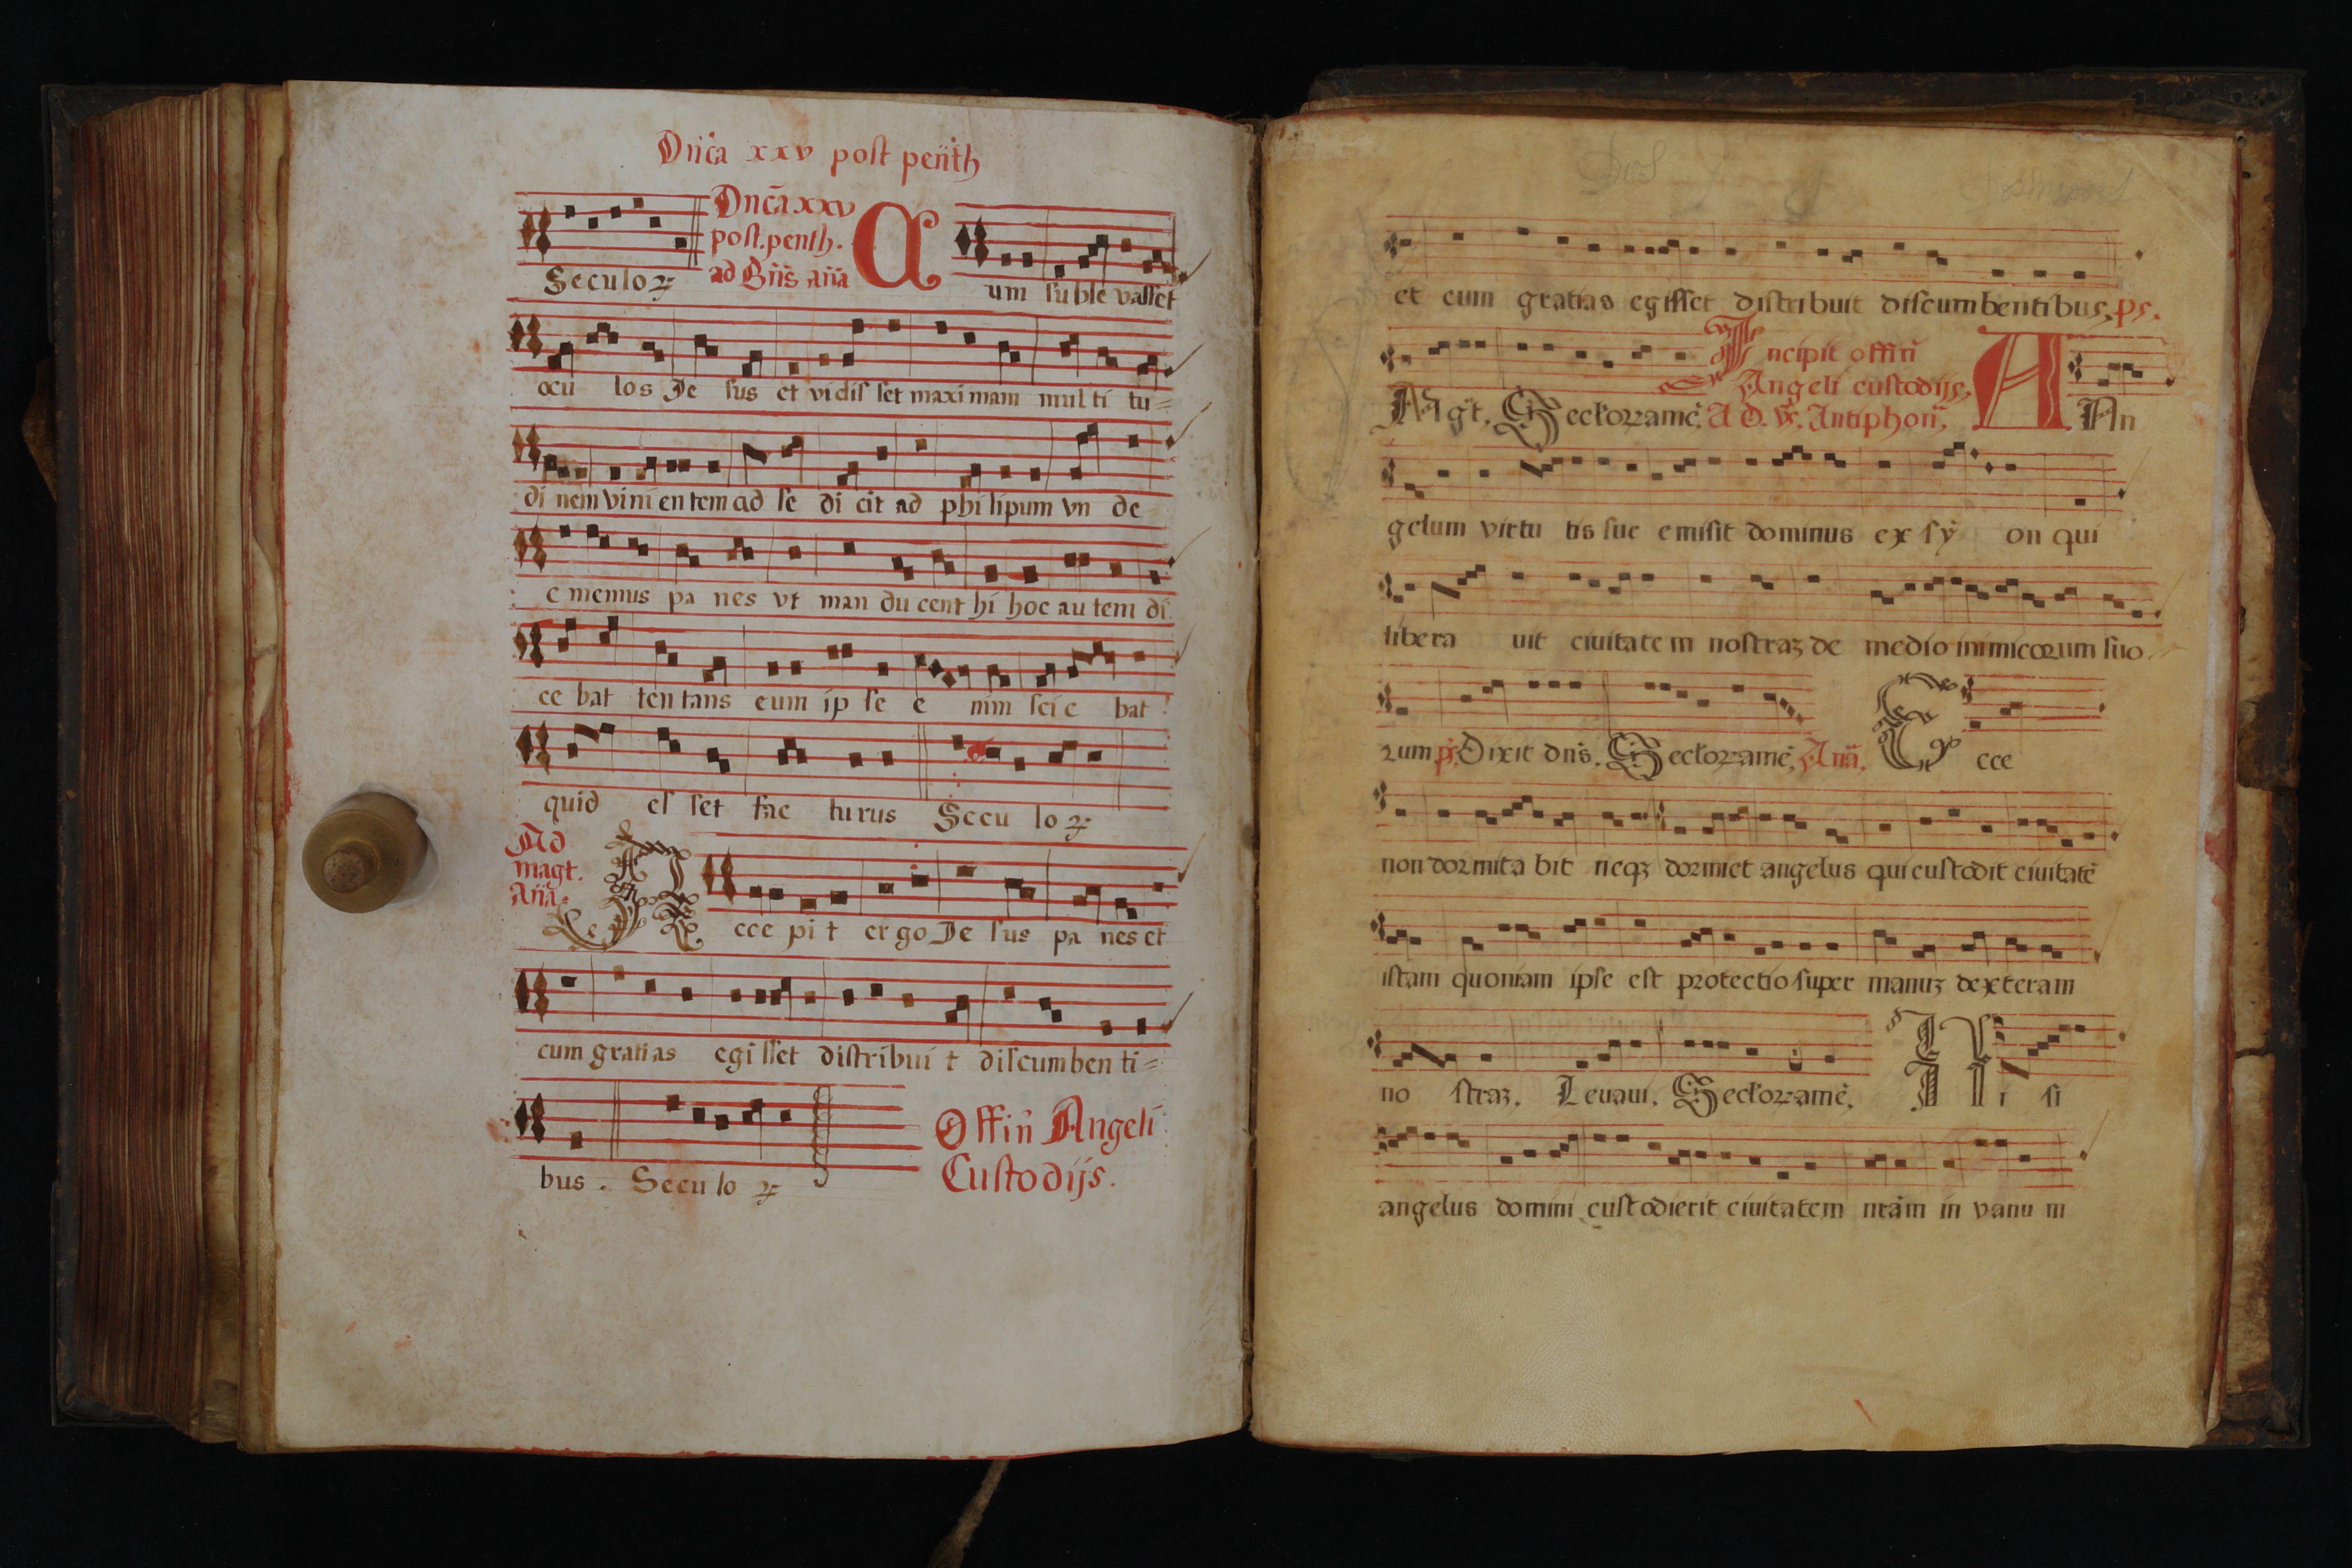 Dñca xxv post penth
Seculoꝝ Dñca xxv
post. penth.
ad Bñs añа Cum suble vasset
ocu los Je sus et vidis set maximam mul ti tu=
di nem vini en tem ad se di cit ad phi lipum vn de
e memus pa nes vt man du cent hi hoc au tem di
ce bat ten tans eum ip se e nim sci e bat
quid es set fac turus Secu lo ꝝ
Ad
magt.
Aña. Accepi t er go Je sus pa nes et
cum gratias egi sset distribui t discumben ti=
bus. Secu lo ꝝ Offiñ Angeli
Custodijs.
et cum gratias egisset distribuit discumbentibus, ps.
Incipit offiñ
Angeli custodijs,
Magt. Seclorꝝ amē. AD. Vs. Antiphoñ, An
gelum virtu tis sue emisit dominus ex sy on qui
libera uit ciuitatem nostraʒ de medio inimicorum suo
rum ps. Dixit dñs. Seclorꝝ amē. Añã. Ecce
non dormita bit neqʒ dormiet angelus qui custodit ciuitatē
istam quoniam ipse est protectio super manuʒ dexteram
no straʒ. Leuaui. Seclorꝝ amē. Ni si
angelus domini custodierit ciuitatem nrãm in vanu m